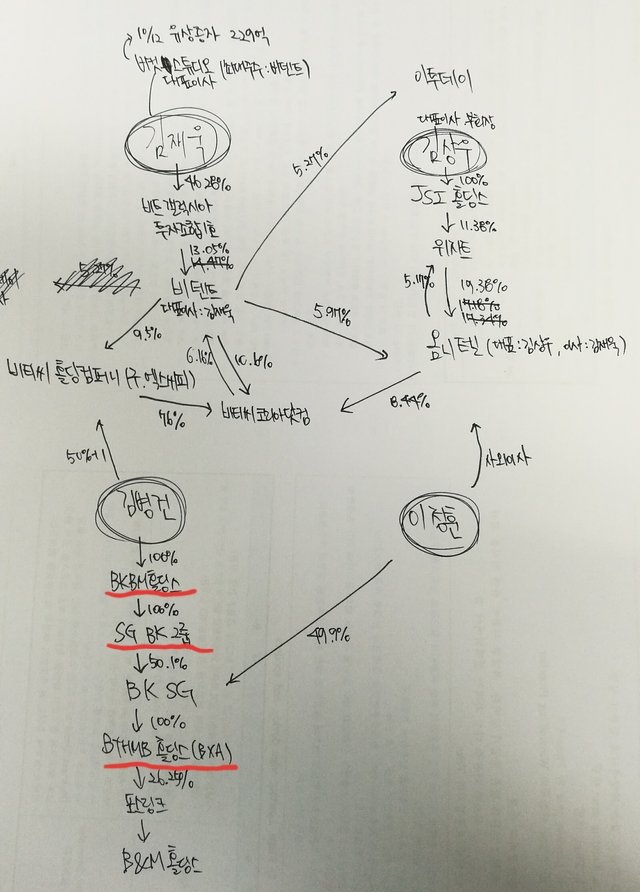 10/12 유상증자 229억
버킷스튜디오 (최대주주:비덴트)
대표이사
김재욱
46.28%
비트갤럭시아
투자조합1호
13.05%
14.47%
비덴트
대표이사:김재욱
5.27%
이투데이
대표이사 부회장
김상우
100%
JSI 홀딩스
11.38%
위지트
5.17%
19.38%
17.18%
17.34%
옴니텔 (대표:김상우, 이사:김재욱)
5.97%
9.5%
10.6%
비티씨 홀딩컴퍼니 (구.엑스씨피)
76%
비티씨코리아닷컴
8.44%
50%+1
사외이사
김병건
이정훈
100%
BKBM홀딩스
100%
SG BK그룹
50.1%
49.9%
BK SG
100%
BTHMB 홀딩스(BXA)
26.25%
판링크
B&M 홀딩스